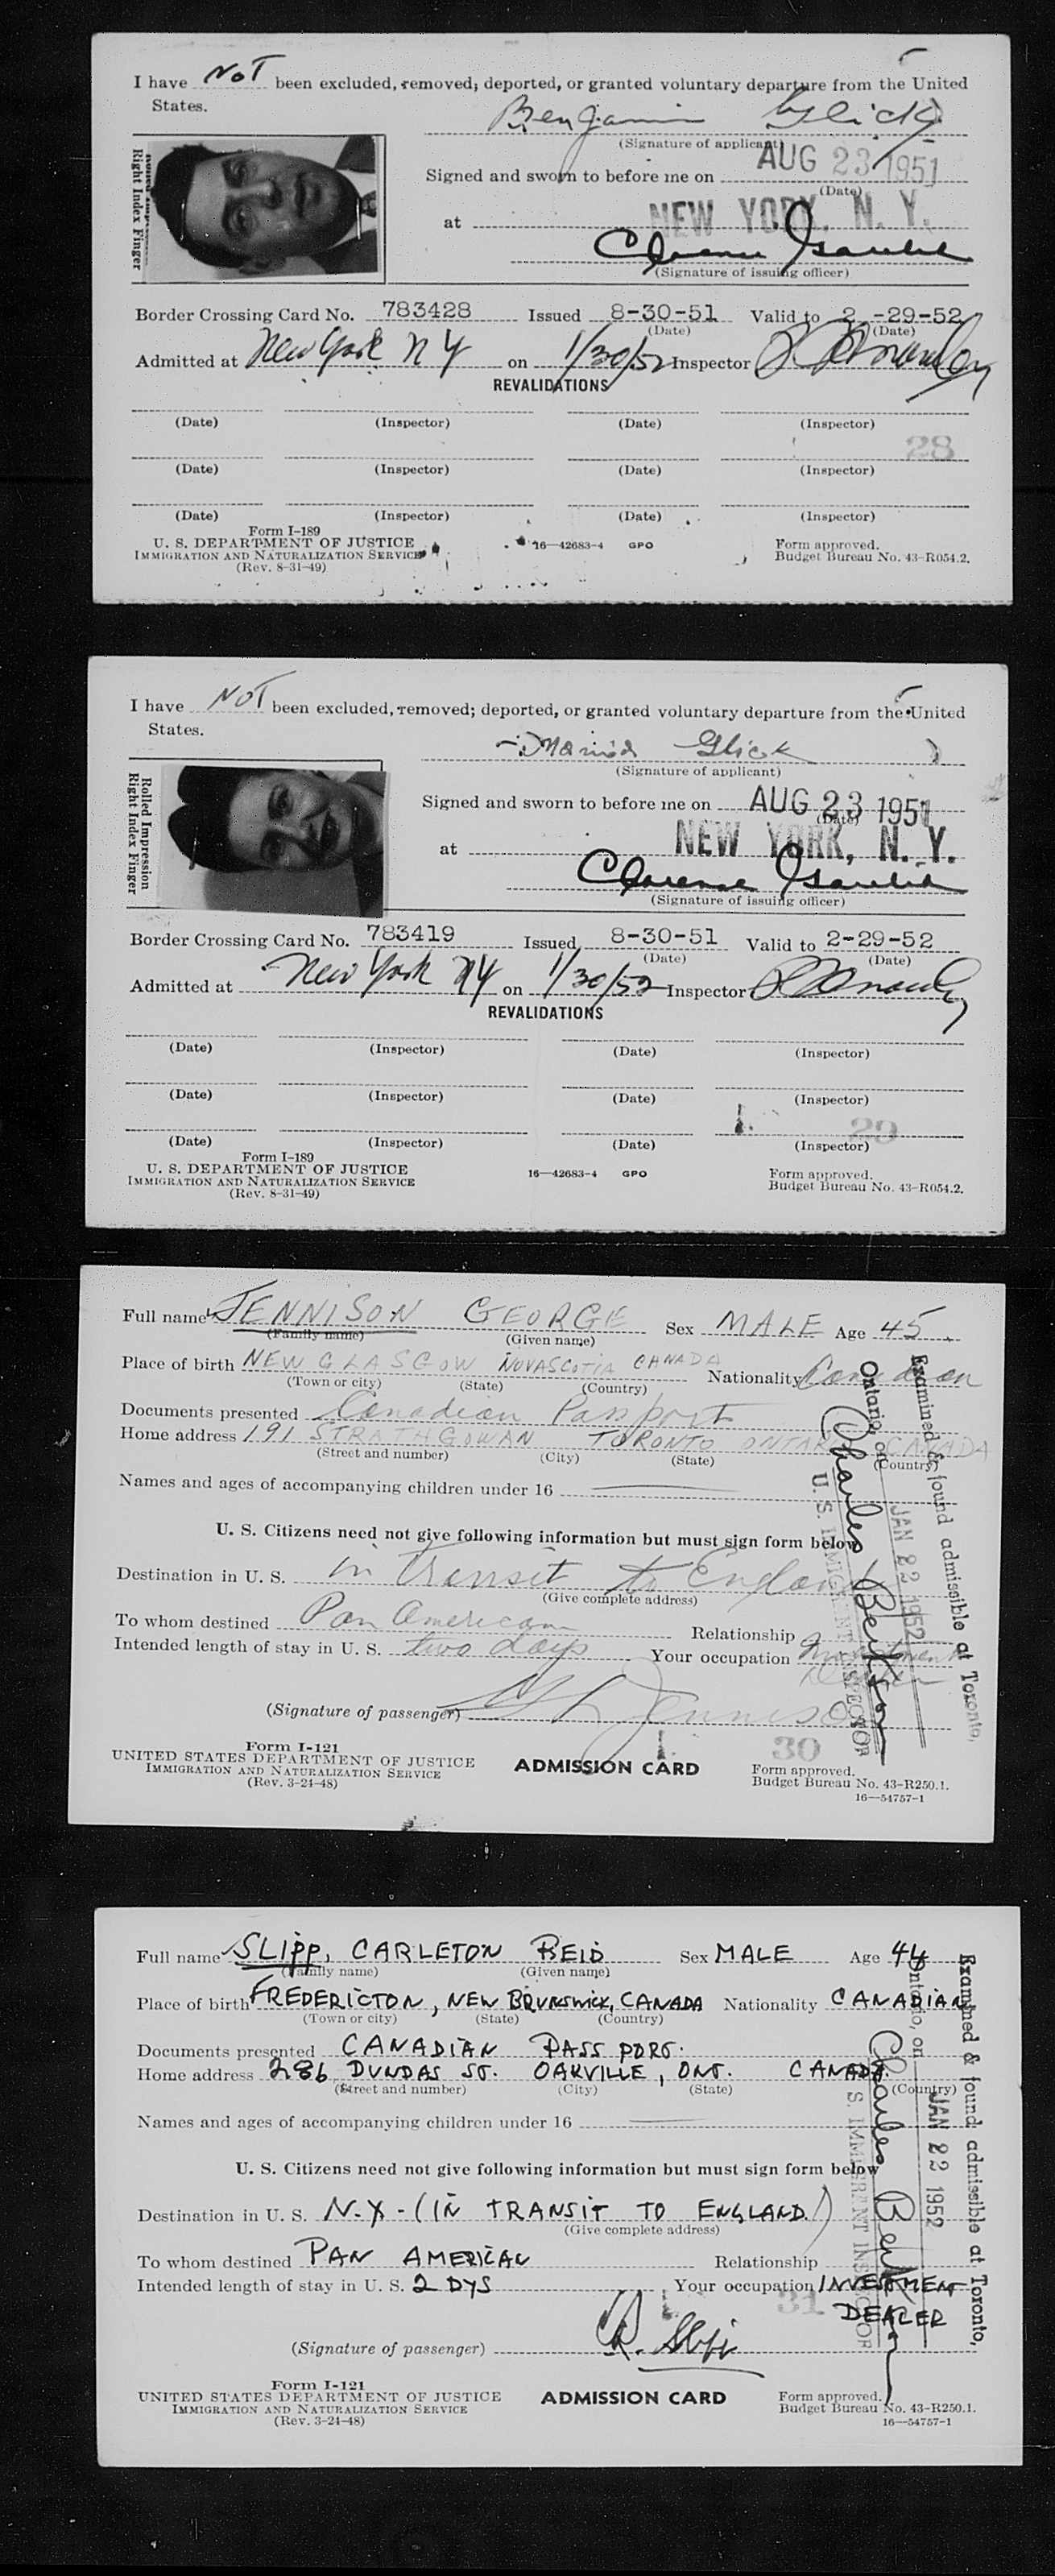 I have NOT been excluded, removed, deported, or granted voluntary departure from the United
States.
Benjamin Glick
(Signature of applicant)
Right Index Finger
Signed and sworn to before me on AUG 23 1951
(Date)
at NEW YORK, N. Y.
Clarence
(Signature of issuing officer)
Border Crossing Card No. 783428 Issued 8-30-51 Valid to 2-29-52
(Date) (Date)
Admitted at New York NY on 1/30/52 Inspector
REVALIDATIONS
(Date) (Inspector) (Date) (Inspector)
28
(Date) (Inspector) (Date) (Inspector)
(Date) (Inspector) (Date) (Inspector)
Form I-189
U. S. DEPARTMENT OF JUSTICE
IMMIGRATION AND NATURALIZATION SERVICE
(Rev. 8-31-49)
16—42683-4 GPO
Form approved.
Budget Bureau No. 43-R054.2.
I have NOT been excluded, removed; deported, or granted voluntary departure from the United
States.
Glick
(Signature of applicant)
Rolled Impression
Right Index Finger
Signed and sworn to before me on AUG 23 1951
(Date)
at NEW YORK, N. Y.
Clarence
(Signature of issuing officer)
Border Crossing Card No. 783419 Issued 8-30-51 Valid to 2-29-52
(Date) (Date)
Admitted at New York NY on 1/30/52 Inspector
REVALIDATIONS
(Date) (Inspector) (Date) (Inspector)
(Date) (Inspector) (Date) (Inspector)
29
(Date) (Inspector) (Date) (Inspector)
Form I-189
U. S. DEPARTMENT OF JUSTICE
IMMIGRATION AND NATURALIZATION SERVICE
(Rev. 8-31-49)
16—42683-4 GPO
Form approved.
Budget Bureau No. 43-R054.2.
Full name JENNISON GEORGE Sex MALE Age 45
(Family name) (Given name)
Place of birth NEW GLASGOW NOVASCOTIA CANADA Nationality Canadian
(Town or city) (State) (Country)
Documents presented Canadian Passport
Home address 191 STRATHGOWAN TORONTO ONTARIO CANADA
(Street and number) (City) (State) (Country)
Names and ages of accompanying children under 16
U. S. Citizens need not give following information but must sign form below
Destination in U. S. in Transit to England
(Give complete address)
To whom destined Pan American Relationship
Intended length of stay in U. S. two days Your occupation Investment Dealer
(Signature of passenger) Jennison
Examined & found admissible at Toronto,
Ontario, on JAN 22 1952
Charles Benison
U. S. IMMIGRANT INSPECTOR
30
Form I-121
UNITED STATES DEPARTMENT OF JUSTICE
IMMIGRATION AND NATURALIZATION SERVICE
(Rev. 3-24-48)
ADMISSION CARD
Form approved.
Budget Bureau No. 43-R250.1.
16—54757-1
Full name SLIPP, CARLETON REID Sex MALE Age 44
(Family name) (Given name)
Place of birth FREDERICTON, NEW BRUNSWICK, CANADA Nationality CANADIAN
(Town or city) (State) (Country)
Documents presented CANADIAN PASS PORT.
Home address 286 DUNDAS ST. OAKVILLE, ONT. CANADA.
(Street and number) (City) (State) (Country)
Names and ages of accompanying children under 16
U. S. Citizens need not give following information but must sign form below
Destination in U. S. N.Y - (IN TRANSIT TO ENGLAND.)
(Give complete address)
To whom destined PAN AMERICAN Relationship
Intended length of stay in U. S. 2 DYS Your occupation INVESTMENT
31 DEALER
(Signature of passenger) C.R. Slipp
Examined & found admissible at Toronto,
Ontario, on JAN 22 1952
Charles
U. S. IMMIGRANT INSPECTOR
Form I-121
UNITED STATES DEPARTMENT OF JUSTICE
IMMIGRATION AND NATURALIZATION SERVICE
(Rev. 3-24-48)
ADMISSION CARD
Form approved.
Budget Bureau No. 43-R250.1.
16—54757-1